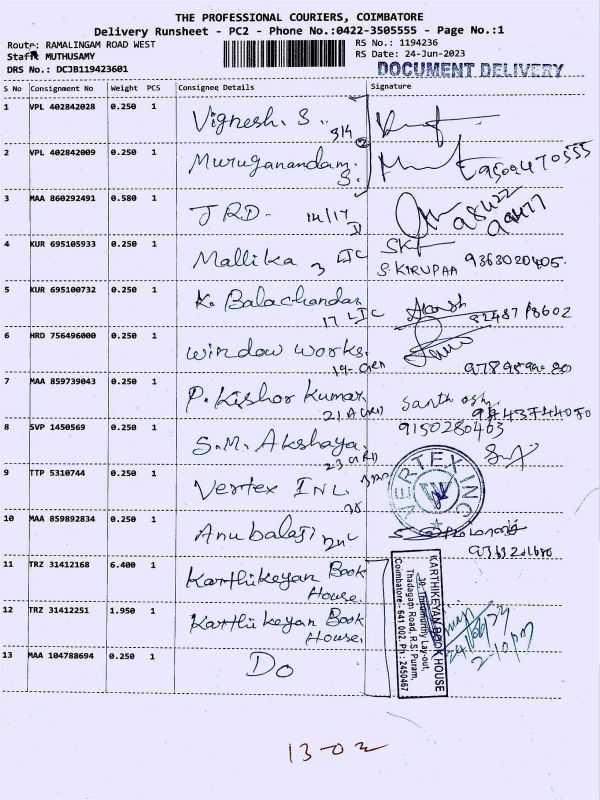 THE PROFESSIONAL COURIERS, COIMBATORE
Delivery Runsheet - PC2 - Phone No.:0422-3505555 - Page No.:1
Route: RAMALINGAM ROAD WEST
RS No.: 1194236
Staff: MUTHUSAMY
RS Date: 24-Jun-2023
DRS No.: DCJB119423601
DOCUMENT DELIVERY
S No Consignment No Weight PCS Consignee Details Signature
1 VPL 402842028 0.250 1 Vignesh. S.
2 VPL 402842009 0.250 1 Muruganandam. S.
3 MAA 860292491 0.580 1 JRD. 14/17
4 KUR 695105933 0.250 1 Mallika 3 S. KIRUPAA 9363020405.
5 KUR 695100732 0.250 1 K. Balachandar 17
6 HRD 756496000 0.250 1 Window Works.
7 MAA 859739043 0.250 1 P. Kishor Kumar Santhosh
8 SVP 1450569 0.250 1 S.M. Akshaya. 9150280463
9 TTP 5310744 0.250 1 Vertex INC VERTEX INC
10 MAA 859892834 0.250 1 Anubalaji
11 TRZ 31412168 6.400 1 Karthikeyan Book House.
12 TRZ 31412251 1.950 1 Karthikeyan Book House.
13 MAA 104788694 0.250 1 Do
KARTHIKEYAN BOOK HOUSE
Thadagam Road, R.S. Puram,
Coimbatore - 641 002. Ph : 2450467
24/06/23
2:10 pm
13-02